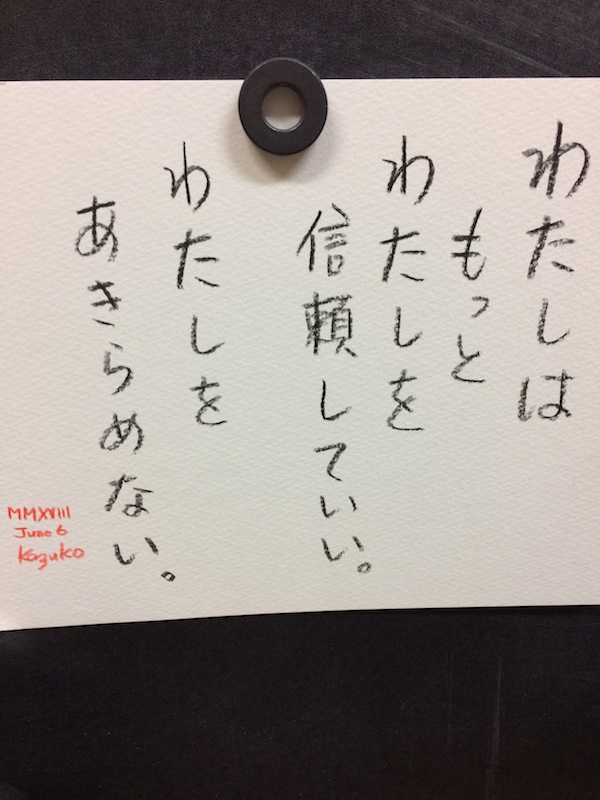 わたしは
もっと
わたしを
信頼していい。
わたしを
あきらめない。
MMXVIII
June 6
Kazuko